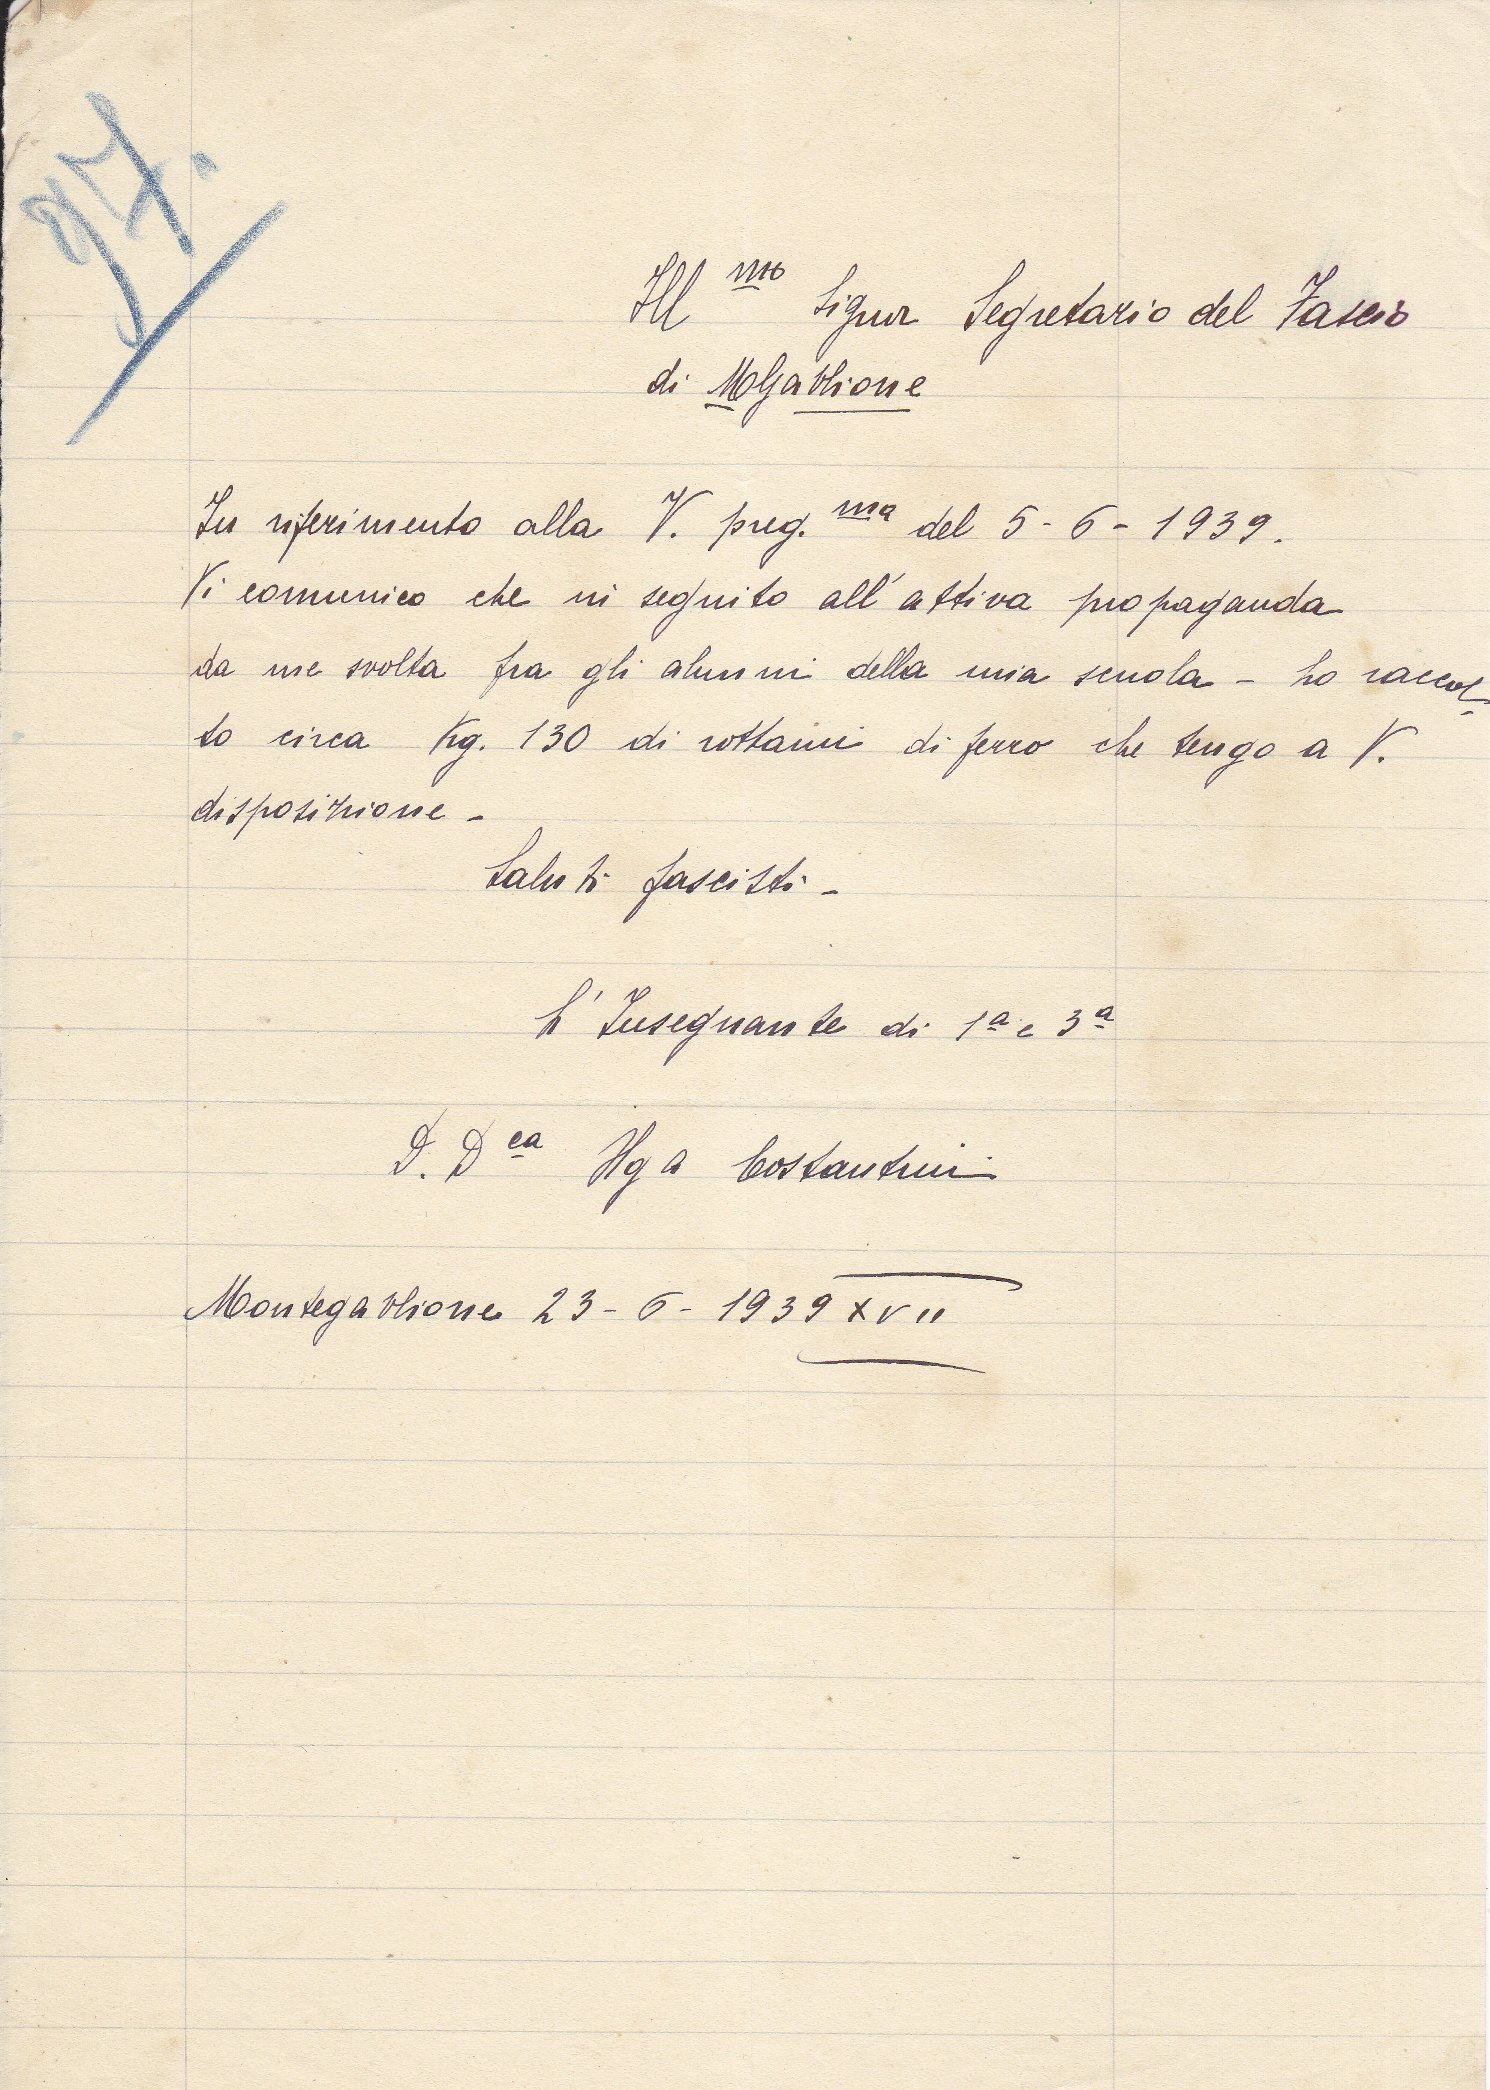 97.
Ill mo Signor Segretario del Fascio
di MGabbione
In riferimento alla V. preg. ma del 5-6-1939.
Vi comunico che in seguito all'attiva propaganda
da me svolta fra gli alunni della mia scuola - ho raccol-
to circa Kg. 130 di rottami di ferro che tengo a V.
disposizione -
Saluti fascisti -
L'Insegnante di 1a e 3a
D. D ca Ilga Costantini
Montegabbione 23-6-1939 XVII